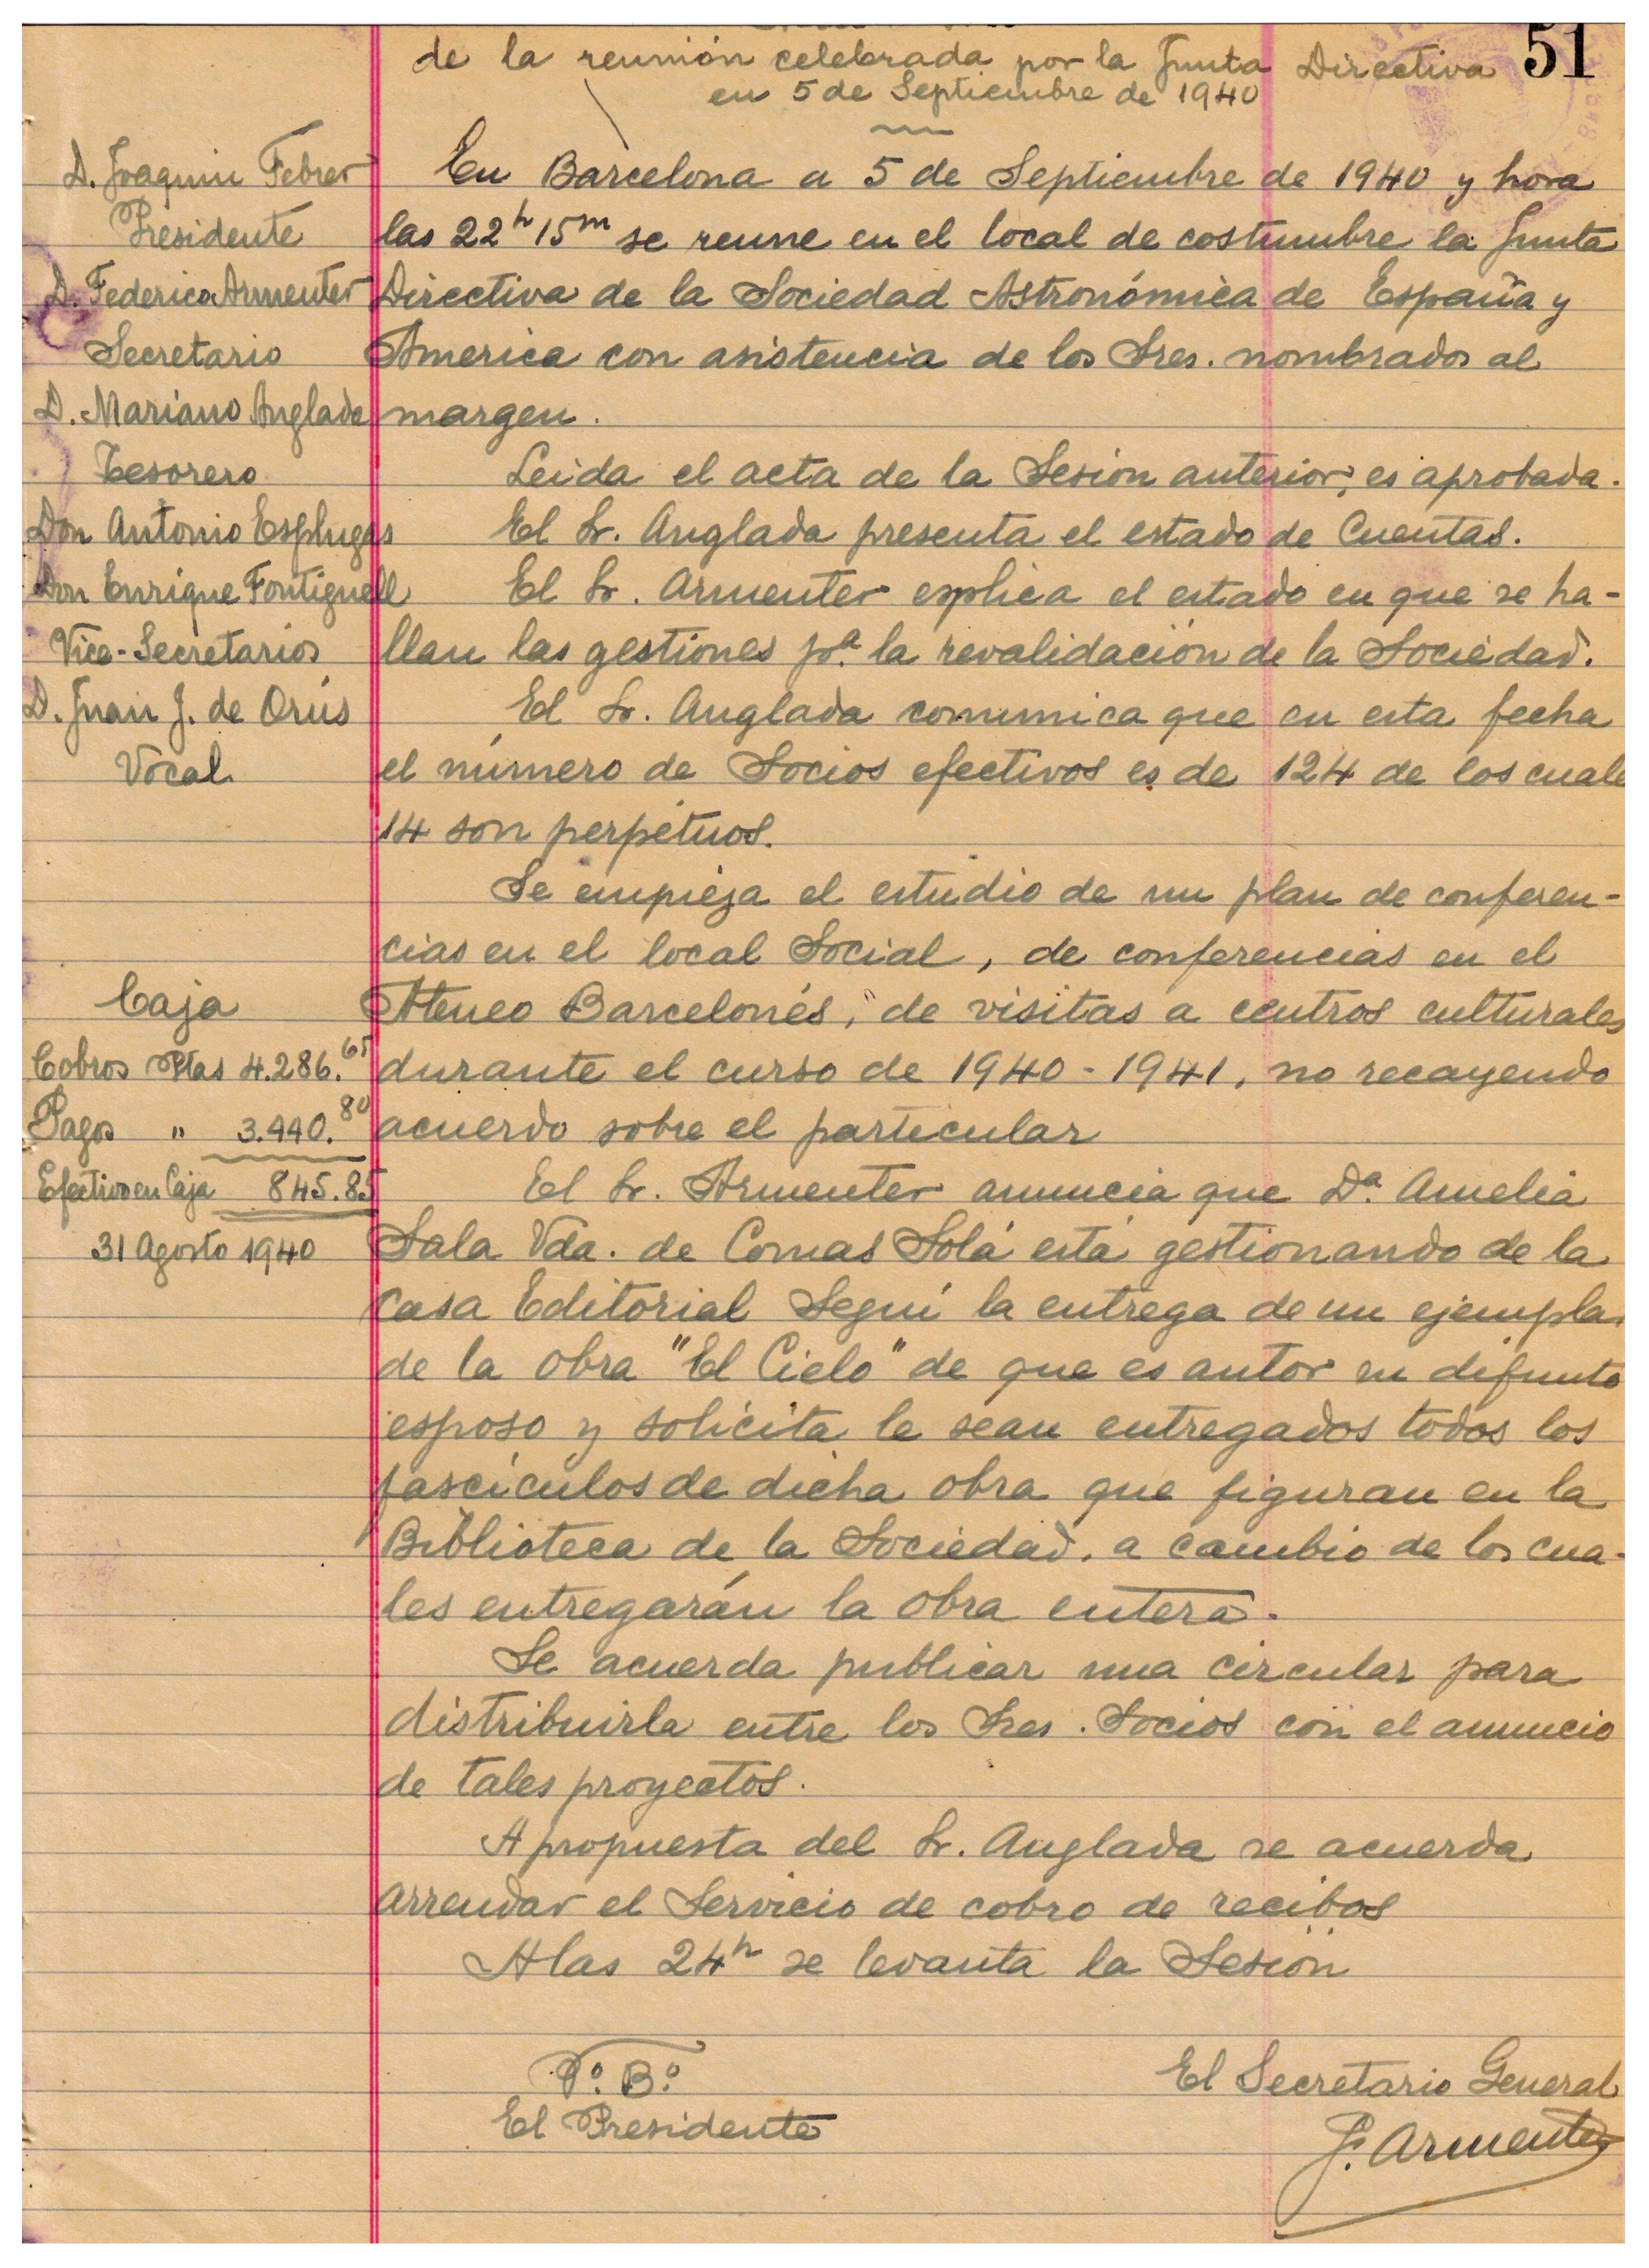 51
de la reunión celebrada por la Junta Directiva
en 5 de Septiembre de 1940
D. Joaquin Febrer
Presidente
D. Federico Armenter
Secretario
D. Mariano Anglada
Tesorero
Don Antonio Esplugas
Don Enrique Fontiguell
Vice-Secretarios
D. Juan J. de Orús
Vocal
En Barcelona a 5 de Septiembre de 1940 y hora
las 22h 15m se reune en el local de costumbre la Junta
Directiva de la Sociedad Astronómica de España y
America con asistencia de los Sres. nombrados al
margen.
Leida el acta de la Sesión anterior, es aprobada.
El Sr. Anglada presenta el estado de Cuentas.
El Sr. Armenter explica el estado en que se ha-
llan las gestiones pª. la revalidación de la Sociedad.
El Sr. Anglada comunica que en esta fecha
el número de Socios efectivos es de 124 de los cuale
14 son perpétuos.
Se empieza el estudio de un plan de conferen-
cias en el local Social, de conferencias en el
Ateneo Barcelonés, de visitas a centros culturales
durante el curso de 1940-1941, no recayendo
acuerdo sobre el particular
Caja
Cobros Ptas 4.286.65
Pagos " 3.440.80
Efectivo en Caja 845.85
31 Agosto 1940
El Sr. Armenter anuncia que Dª. Amelia
Sala Vda. de Comas Solá está gestionando de la
Casa Editorial Seguí la entrega de un ejemplar
de la obra "El Cielo" de que es autor su difunto
esposo y solicita le sean entregados todos los
fascículos de dicha obra que figuran en la
Biblioteca de la Sociedad, a cambio de los cua-
les entregarán la obra entera.
Se acuerda publicar una circular para
distribuirla entre los Sres. Socios con el anuncio
de tales proyectos.
A propuesta del Sr. Anglada se acuerda
arrendar el Servicio de cobro de recibos
A las 24h se levanta la Sesión
Vº. Bº.
El Presidente
El Secretario General
F. Armenter